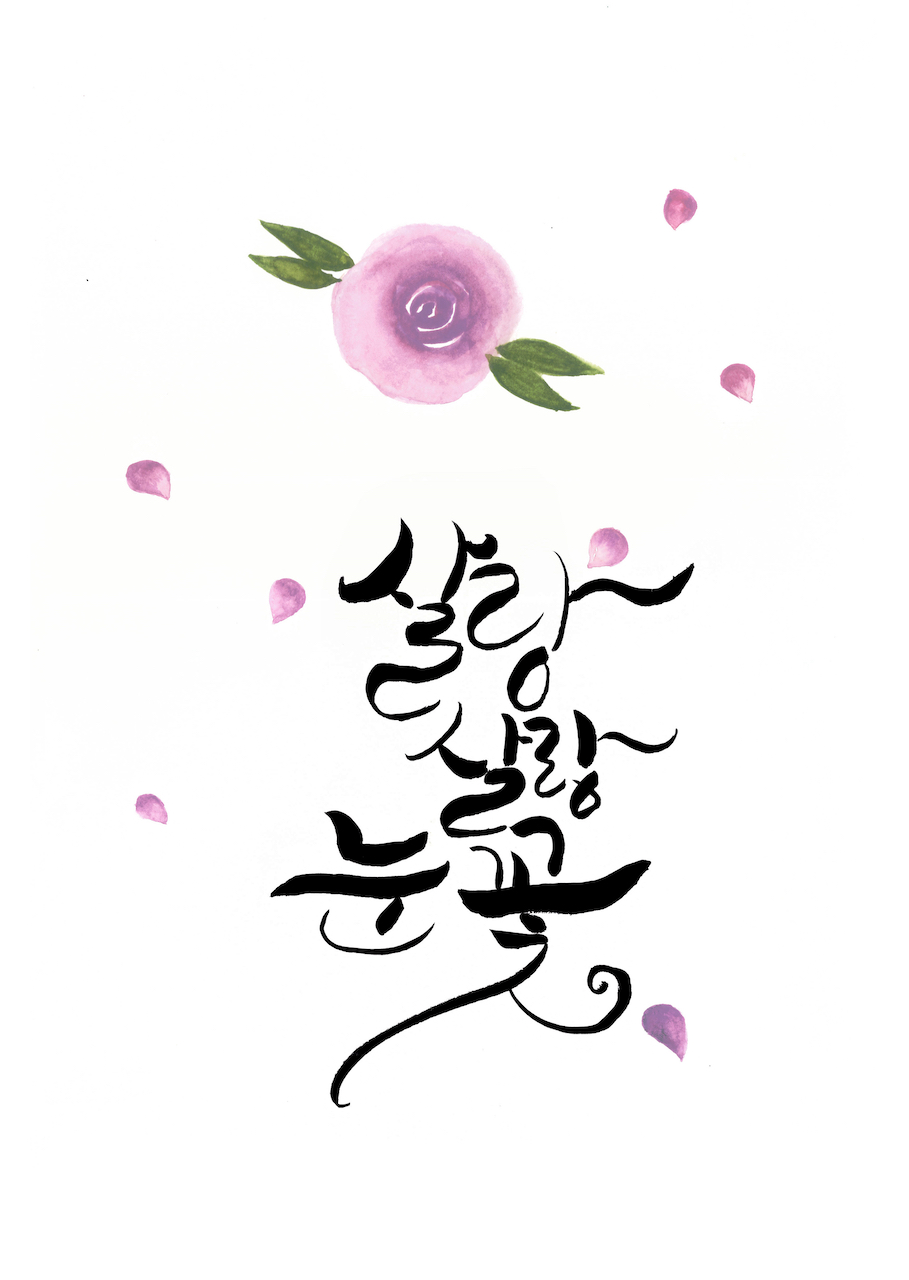 살랑
살랑
눈꽃